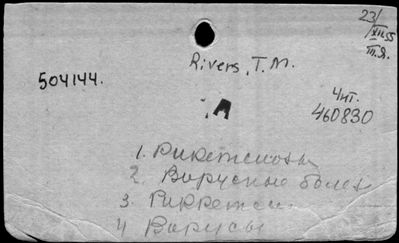 23/
XII.55
Т.Я.
Rivers, T.M.
504144.
Чит.
460830
1. Рикетсиозы
2. Вирусные болез
3. Риккетси.
4 Вирусы